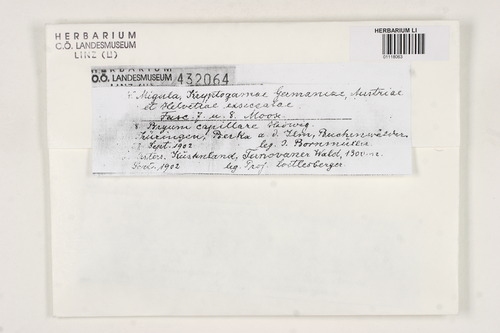 HERBARIUM
C.Ö. LANDESMUSEUM
LINZ (LI)
HERBARIUM LI
HERBARIUM
C.Ö. LANDESMUSEUM 432064
Migula, Kryptogamae Germaniae, Austriae
et Helvetiae exsiccatae.
Fasc. 7. u. 8. Moose.
8 Bryum capillare Hedwig
Thüringen, Berka a. d. Ilm, Buchenwälder.
Sept. 1902 leg. J. Bornmüller
Küstenland, Ternovaner Wald, 1300 m.
1902 leg. Prof. Loitlesberger.